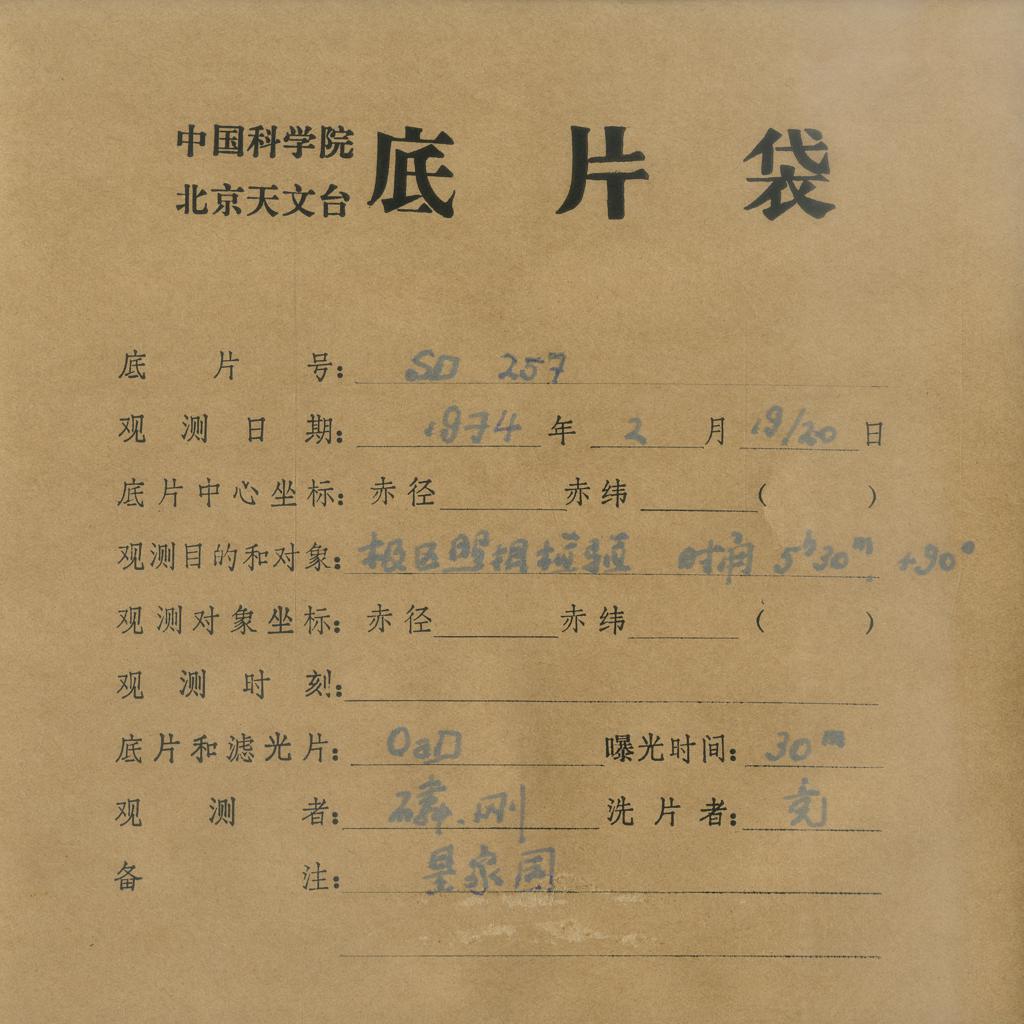 中国科学院
北京天文台
底片袋
底片号: SD 257
观测日期: 1974 年 2 月 19/20 日
底片中心坐标: 赤径 赤纬 ( )
观测目的和对象: 极区照相检验 时角 5h30m +90°
观测对象坐标: 赤径 赤纬 ( )
观测时刻:
底片和滤光片: OaD 曝光时间: 30m
观测者: 磷.刚 洗片者:
备注: